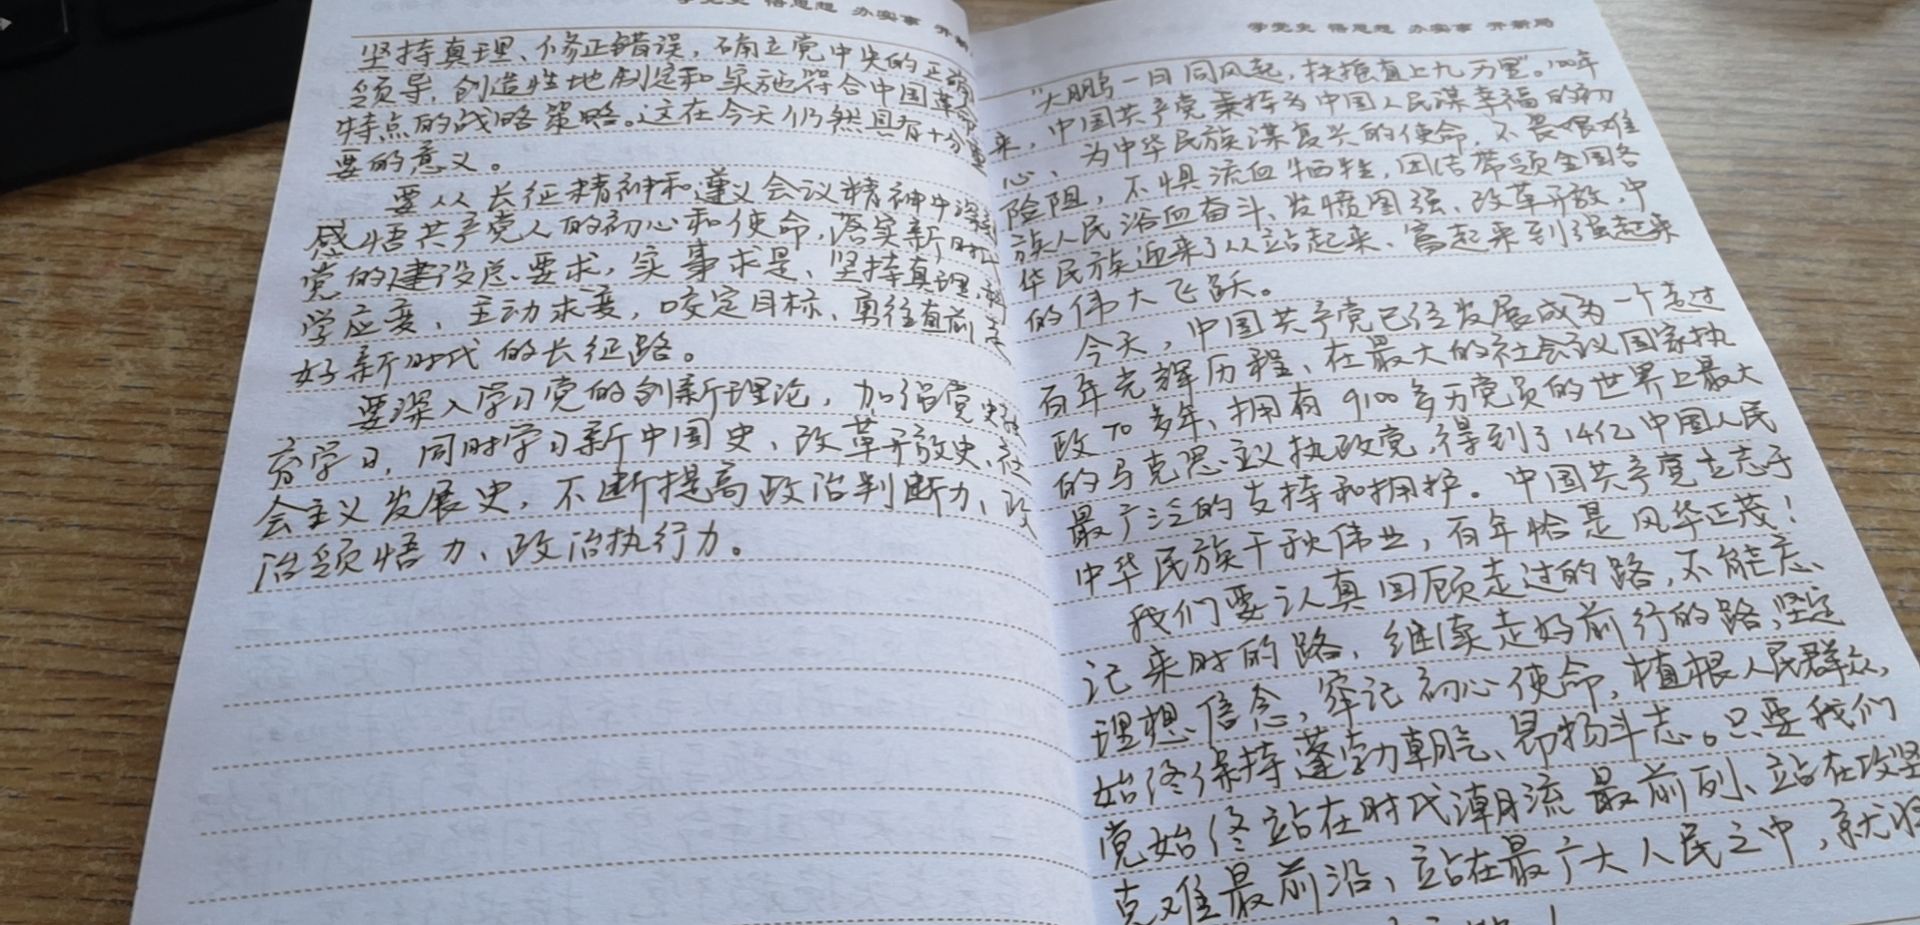 学党史 悟思想 办实事 开新
坚持真理、修正错误，确立党中央的正确
领导，创造性地制定和实施符合中国革命
特点的战略策略。这在今天仍然具有十分重
要的意义。
要从长征精神和遵义会议精神中深刻
感悟共产党人的初心和使命，落实新时代
党的建设总要求，实事求是、坚持真理，
学应变、主动求变，咬定目标、勇往直前走
好新时代的长征路。
要深入学习党的创新理论，加强党史
学习，同时学习新中国史、改革开放史、社
会主义发展史，不断提高政治判断力、政
治领悟力、政治执行力。
学党史 悟思想 办实事 开新局
“大鹏一日同风起，扶摇直上九万里”。100年
来，中国共产党秉持为中国人民谋幸福的初
心、为中华民族谋复兴的使命，不畏艰难
险阻，不惧流血牺牲，团结带领全国各
族人民浴血奋斗、发愤图强、改革开放，中
华民族迎来了从站起来、富起来到强起来
的伟大飞跃。
今天，中国共产党已经发展成为一个走过
百年光辉历程、在最大的社会主义国家执
政70多年、拥有9100多万党员的世界上最大
的马克思主义执政党，得到了14亿中国人民
最广泛的支持和拥护。中国共产党立志于
中华民族千秋伟业，百年恰是风华正茂！
我们要认真回顾走过的路，不能忘
记来时的路，继续走好前行的路，坚定
理想信念，牢记初心使命，植根人民群众，
始终保持蓬勃朝气、昂扬斗志。只要我们
党始终站在时代潮流最前列、站在攻坚
克难最前沿、站在最广大人民之中，就